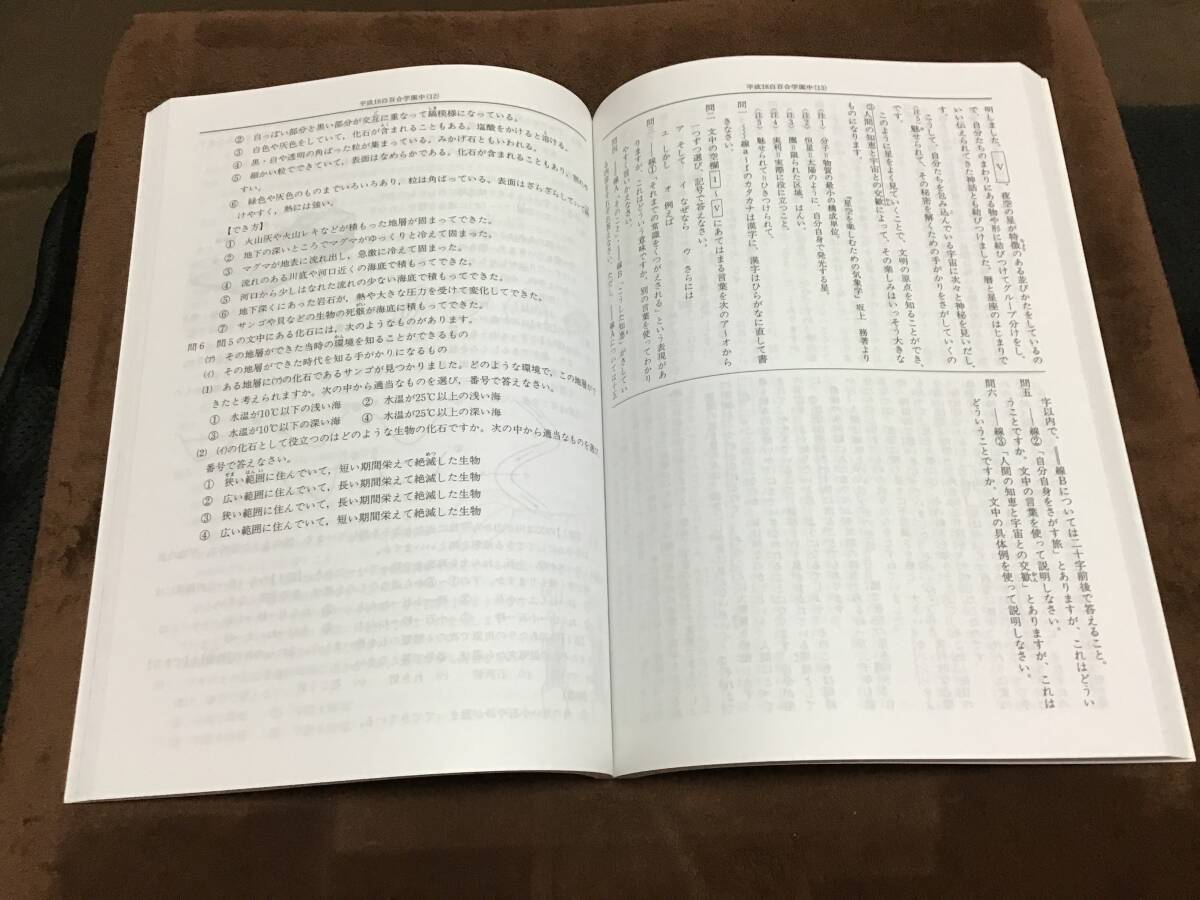 平成18白百合学園中(12)
② 白っぽい部分と黒い部分が交互に重なって縞模様になっている。
③ 白色や灰色をしていて，化石が含まれることもある。塩酸をかけると溶ける。
④ 黒・白や透明の角ばった粒が集まっている。みかげ石ともいわれる。
⑤ 細かい粒でできていて，表面はなめらかである。化石が含まれることもあり，
すい。
⑥ 緑色や灰色のものまでいろいろあり，粒は角ばっている。表面はざらざらしていて
けやすく，熱には強い。
【でき方】
① 火山灰や火山レキなどが積もった地層が固まってできた。
② 地下の深いところでマグマがゆっくりと冷えて固まった。
③ マグマが地表に流れ出し，急激に冷えて固まった。
④ 流れのある川底や河口近くの海底で積もってできた。
⑤ 河口から少しはなれた流れの少ない海底で積もってできた。
⑥ 地下深くにあった岩石が，熱や大きな圧力を受けて変化してできた。
⑦ サンゴや貝などの生物の死骸が海底に積もってできた。
問6 問5の文中にある化石には，次のようなものがあります。
(ア) その地層ができた当時の環境を知ることができるもの
(イ) その地層ができた時代を知る手がかりになるもの
(1) ある地層に(ア)の化石であるサンゴが見つかりました。どのような環境で，この地層がで
きたと考えられますか。次の中から適当なものを選び，番号で答えなさい。
① 水温が10℃以下の浅い海 ② 水温が25℃以上の浅い海
③ 水温が10℃以下の深い海 ④ 水温が25℃以上の深い海
(2) (イ)の化石として役立つのはどのような生物の化石ですか。次の中から適当なものを選び，
番号で答えなさい。
① 狭い範囲に住んでいて，短い期間栄えて絶滅した生物
② 広い範囲に住んでいて，長い期間栄えて絶滅した生物
③ 狭い範囲に住んでいて，長い期間栄えて絶滅した生物
④ 広い範囲に住んでいて，短い期間栄えて絶滅した生物
平成18白百合学園中(13)
明しました。 Ⅴ 、夜空の星が特徴のある並びかたをしているの
で、自分たちのまわりにある物や形に結びつけてグループ分けをし、
いい伝えられてきた神話とも結びつけました。暦と星座のはじまりで
す。
こうして、自分たちを包み込んでいる宇宙に次々と神秘を見いだし、
(注5)魅せられて、その秘密を解くための手がかりをさがしていくの
です。
このように星をよく見ていくことで、文明の原点を知ることができ、
③人間の知恵と宇宙との交歓によって、その楽しみはいっそう大きな
ものになります。
『星空を楽しむための気象学』坂上 務著より
(注1) 分子＝物質の最小の構成単位。
(注2) 恒星＝太陽のように、自分自身で発光する星。
(注3) 圏＝限られた区域、はんい。
(注4) 実利＝実際に役に立つこと。
(注5) 魅せられて＝ひきつけられて。
問一 ——線a～fのカタカナは漢字に、漢字はひらがなに直して書
きなさい。
問二 文中の空欄 Ⅰ ～ Ⅴ にあてはまる言葉を次のア～オから
一つずつ選び、記号で答えなさい。
ア そして イ なぜなら ウ さらには
エ しかし オ 例えば
問三 ——線①「それまでの常識をくつがえされる」という表現があ
りますが、これはどういう意味ですか。別の言葉を使ってわかり
やすく言いかえなさい。
字以内で、——線Bについては二十字前後で答えること。
問五 ——線②「自分自身をさがす旅」とありますが、これはどうい
うことですか。文中の言葉を使って説明しなさい。
問六 ——線③「人間の知恵と宇宙との交歓」とありますが、これは
どういうことですか。文中の具体例を使って説明しなさい。